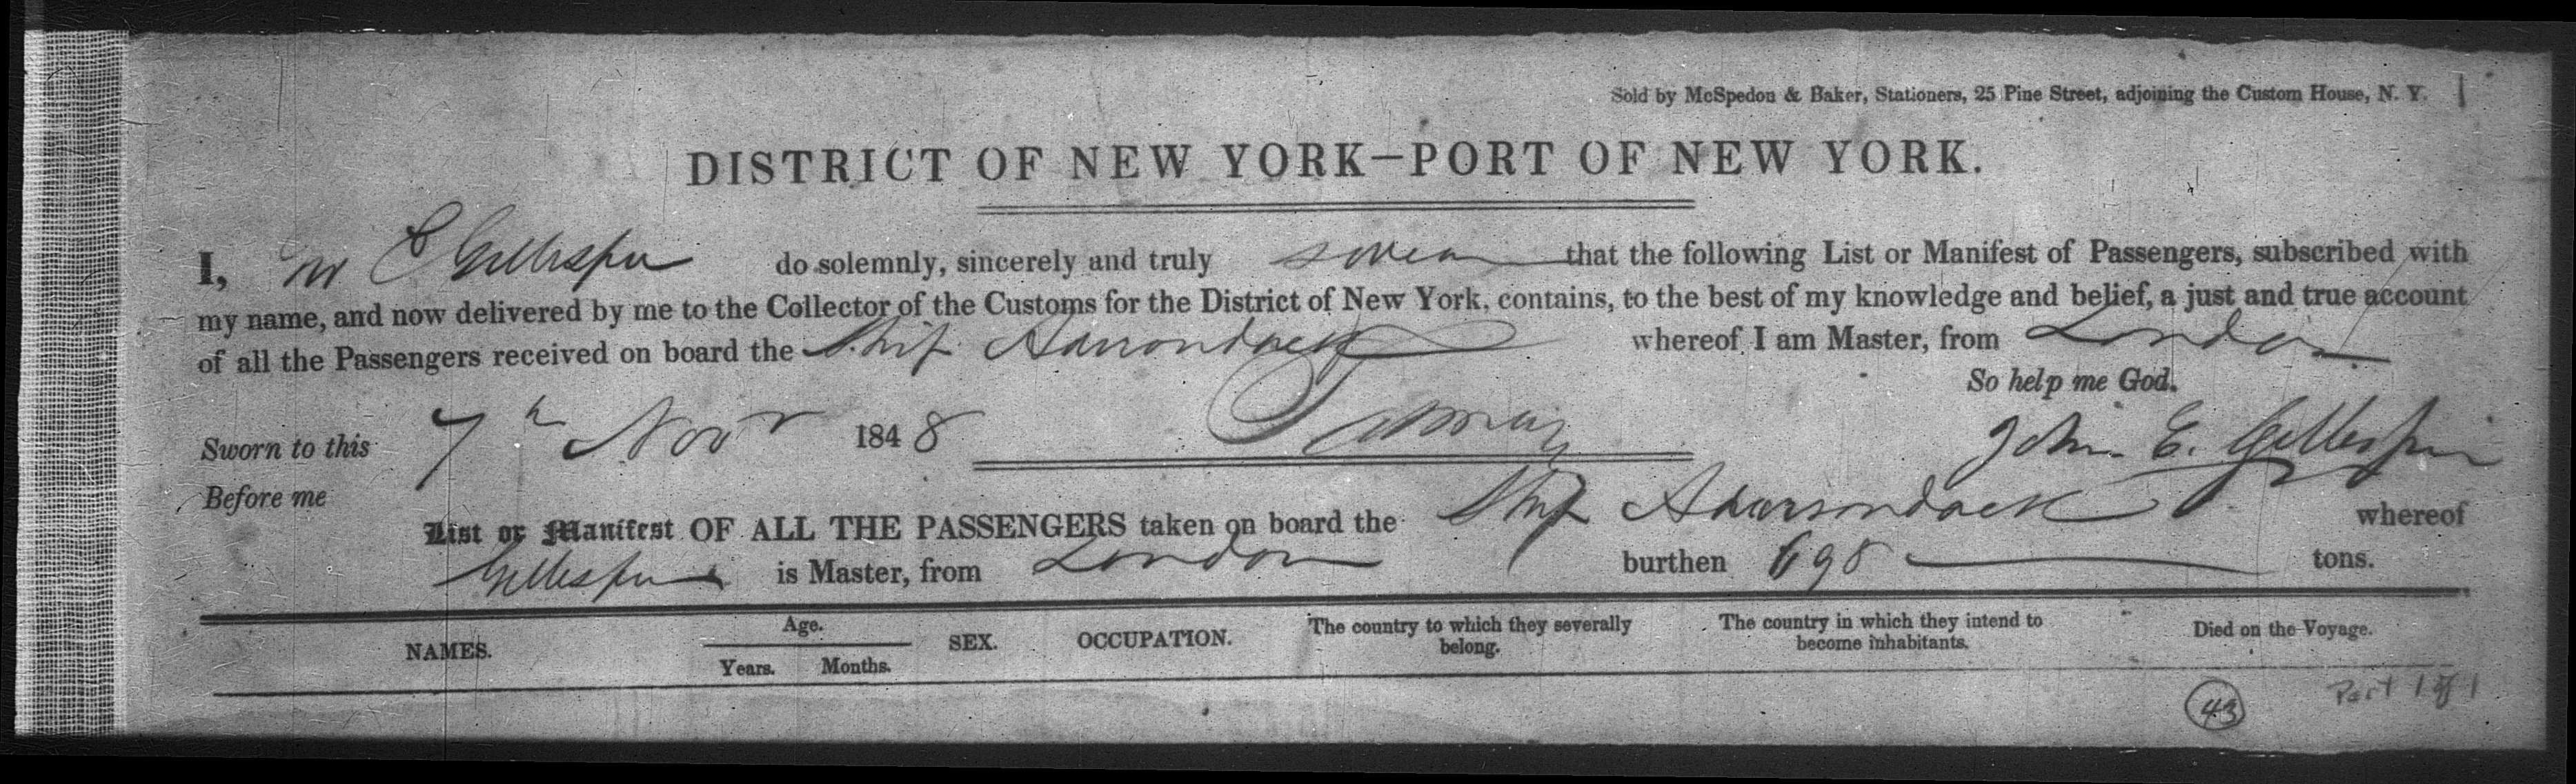 Sold by McSpedon & Baker, Stationers, 25 Pine Street, adjoining the Custom House, N. Y.
DISTRICT OF NEW YORK—PORT OF NEW YORK.
I, E Gillespie do solemnly, sincerely and truly swear that the following List or Manifest of Passengers, subscribed with
my name, and now delivered by me to the Collector of the Customs for the District of New York, contains, to the best of my knowledge and belief, a just and true account
of all the Passengers received on board the Ship Adirondack whereof I am Master, from London
So help me God.
Sworn to this 7th Novr 1848 John E. Gillespie
Before me
List or Manifest OF ALL THE PASSENGERS taken on board the Ship Adirondack whereof
Gillespie is Master, from London burthen 698 tons.
NAMES. Age. Years. Months. SEX. OCCUPATION. The country to which they severally belong. The country in which they intend to become inhabitants. Died on the Voyage.
43 Part 1 of 1